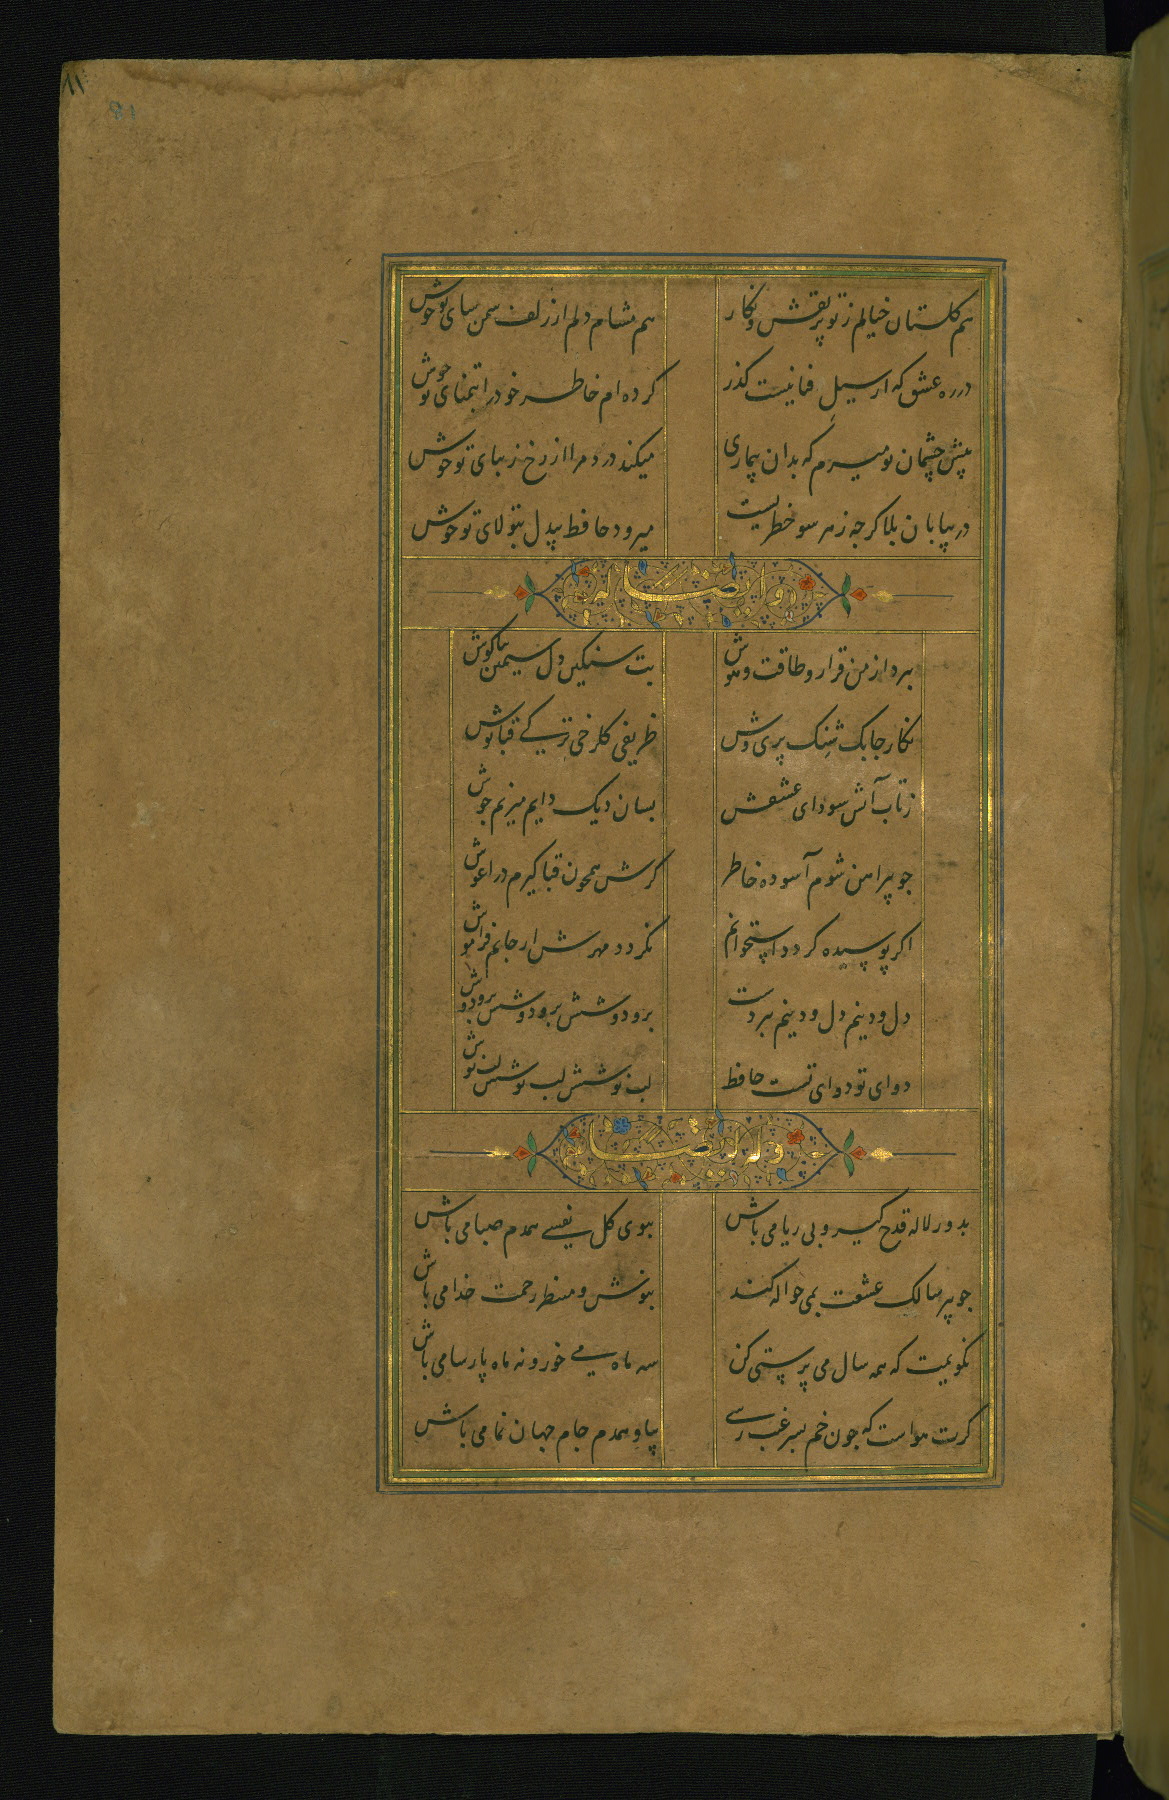 ۸۱
81
هم کلستان خیالم ز تو پر نقش و نکار هم مشام دلم از زلف سمن سای تو خوش
در ره عشق که از سیل فنا نیست کذر کرده ام خاطر خود را بتمنای تو خوش
پیش چشمان تو میرم که بدان بیماری میکند درد مرا از رخ زیبای تو خوش
در بیابان بلا کرجه ز هر سو خطریست میرود حافظ بیدل بتولای تو خوش
وله ایضا
ببرد از من قرار و طاقت و هوش بت سنکین دل سیمین بناکوش
نکار جابک شنک پری وش ظریفی کلرخی ترکی قباپوش
ز تاب آتش سودای عشقش بسان دیک دایم میزنم جوش
جو پیراهن شوم آسوده خاطر کرش همچون قبا کیرم در اغوش
اکر پوسیده کردد استخوانم نکردد مهرش از جانم فراموش
دل و دینم دل و دینم ببردست بر و دوشش بر و دوشش بر و دوش
دوای تو دوای تست حافظ لب نوشش لب نوشش لب نوش
وله ایضا
بدور لاله قدح کیر و بی ریا می باش ببوی کل نفسی همدم صبا می باش
جو پیر سالک عشقت بمی حواله کند بنوش و منتظر رحمت خدا می باش
نکویمت که همه سال می پرستی کن سه ماه می خور و نه ماه پارسا می باش
کرت هواست که جون جم بسر غیب رسی بیا و همدم جام جهان نما می باش